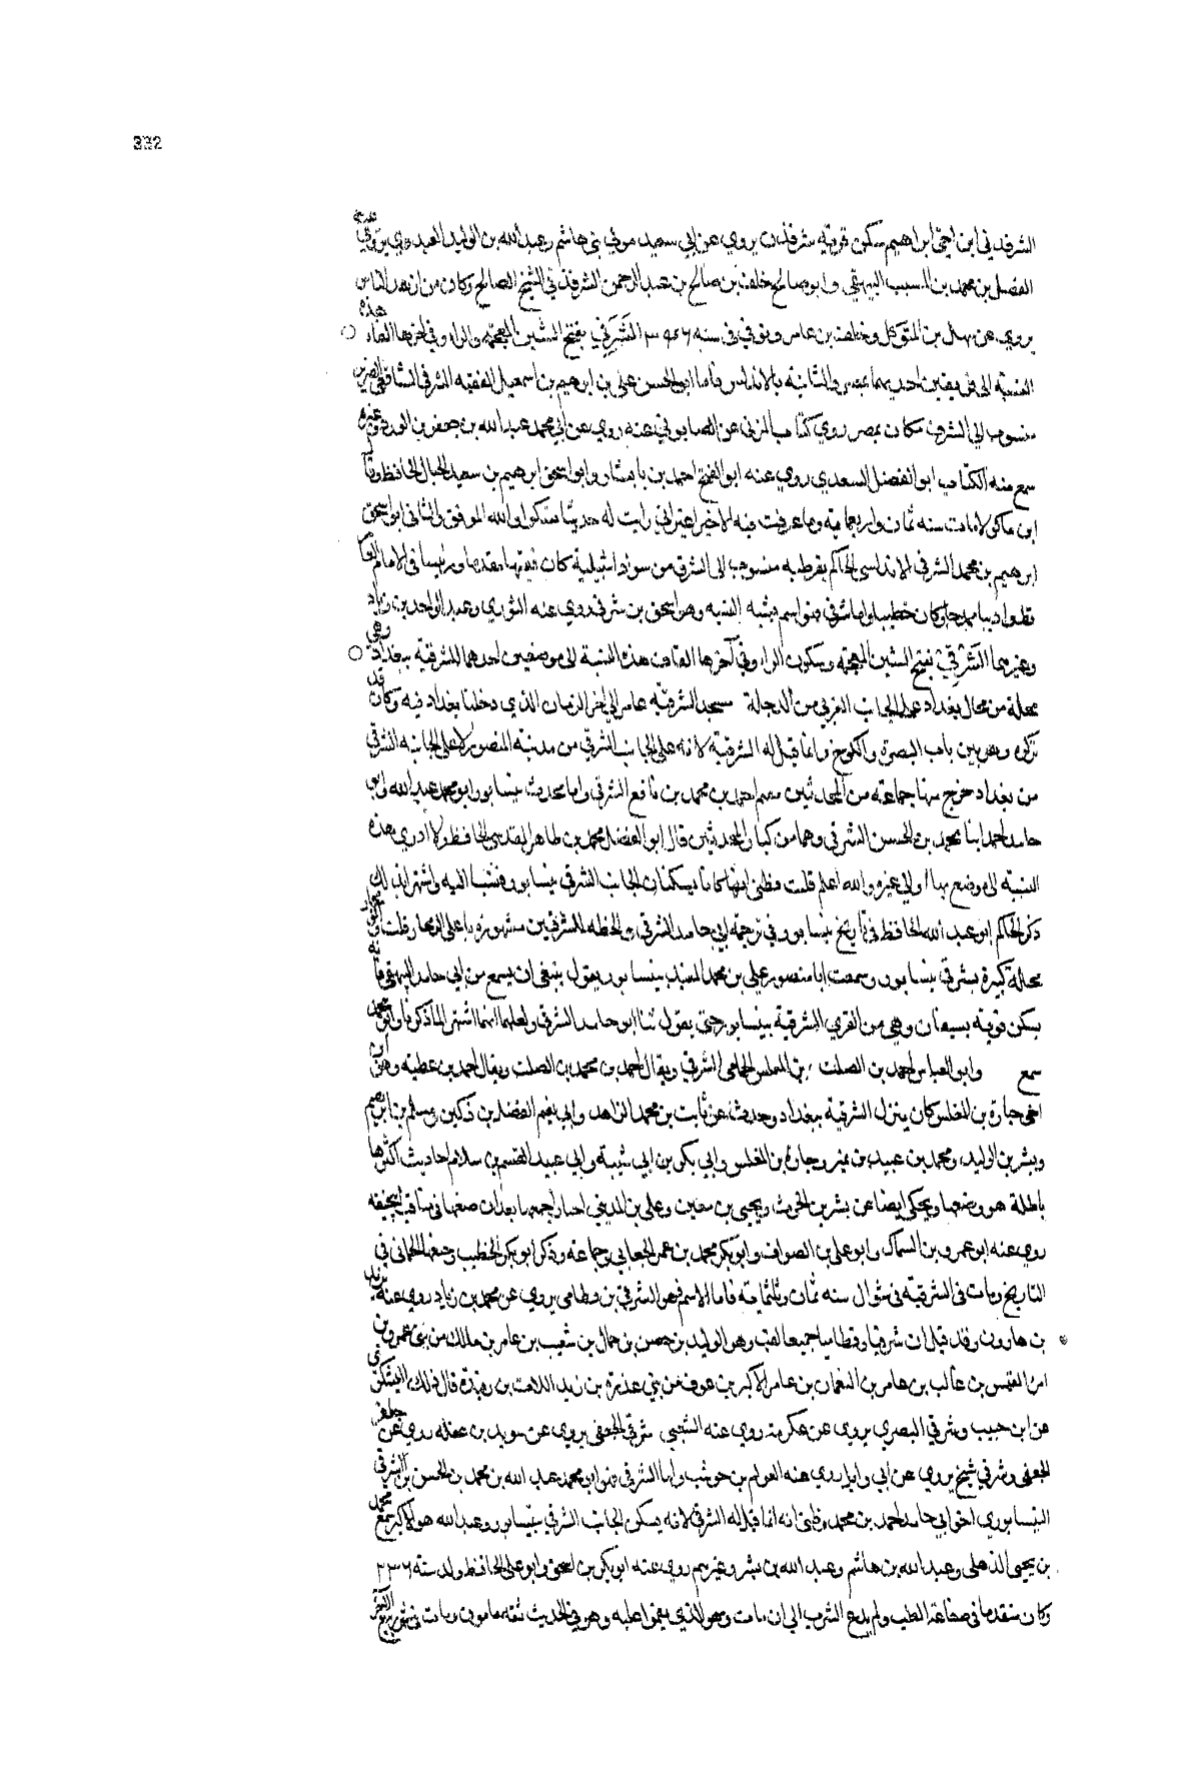 332
الشرفدني ابن اخي ابراهيم سكن قرية شرفدن يروي عن ابي سعيد مولى بني هاشم وعبد الله بن الوليد العدني يروي عنه
الفضل بن محمد بن المسيب البيهقي وابو صالح خلف بن صالح بن عبد الرحمن الشرفدني الشيخ الصالح وكان من ازهد الناس
يروي عن سهل بن المتوكل وخلف بن عامر وتوفي في سنه الشَرَفي بفتح الشين المعجمة والراء وفي اخرها الفاء هذه
النسبة الى موضعين احديهما بمصر والثانية بالاندلس فاما ابو الحسن علي بن ابرهيم بن اسمعيل الفقيه الشرفي الشافعي الضرير
منسوب الى الشرف مكان بمصر روى كتاب المزني عن الصابوني عنه روى عن ابي محمد عبد الله بن جعفر بن الورد وغيره
سمع منه الكتاب ابو الفضل السعدي روى عنه ابو الفتح احمد بن بابشاذ وابو اسحق ابرهيم بن سعيد الحبال الحافظ وقال
ابن ماكولا مات سنه ثمان واربعماية وما عرفت فيه الاخير اعتراني رايت له حديثا منكرا والله الموفق والثاني ابو اسحق
ابرهيم بن محمد الشرفي الاندلسي الحاكم بقرطبه منسوب الى الشرف من سواد اشبيلية كان فقيها مقدما ورئيسا في الايام العا
قطوا ديبا مدحا وكان خطيبا واما شرفي فهو اسم يشبه النسبه وهو اسحق بن شرفي روى عنه الثوري وعبد الواحد بن زياد
وغيرهما الشَرْقي بفتح الشين المعجمة وسكون الراء وفي آخرها القاف هذه النسبة الى موضعين احدهما الشرقية ببغداد وهي
محلة من محال بغداد على الجانب الغربي من الدجلة مسجد الشرقية عامر الى اخر الزمان الذي دخلنا بغداد فيه وكان قد
نزله وهو بين باب البصرة والكرخ وانما قيل له الشرقية لانه على الجانب الشرقي من مدينة المنصور لا على الجانب الشرقي
من بغداد خرج منها جماعة من المحدثين منهم احمد بن محمد بن نافع الشرقي واما محدث نيسابور ابو محمد عبد الله وابو
حامد احمد ابنا محمد بن الحسن الشرقي وهما من كبار المحدثين قال ابو الفضل محمد بن طاهر المقدسي الحافظ ولا ادري هذه
النسبة الى موضع بها او الى غيره والله اعلم قلت وظني انهما كانا يسكنان الجانب الشرقي بنيسابور فنسبا اليه واشتهرا بذلك
ذكر الحاكم ابو عبد الله الحافظ في تاريخ نيسابور في ترجمة ابي حامد الشرقي الخطه للشرقيين مشهورة باعلى الرمجار قلت
محلة كبيرة بشرقي نيسابور وسمعت ابا منصور علي بن محمد بنيسابور يقول ينبغي ان يسمع من ابي حامد البيهقي
يسكن قرية وهي من القرى الشرقية بنيسابور حتى يقول ثنا ابو حامد الشرقي ولعلهما انما اشتهرا لما ذكرنا وابو محمد
سمع وابو العباس احمد بن الصلت بن المغلس الحماني الشرقي ويقال احمد بن محمد بن الصلت ويقال احمد بن عطية وهو ابن
اخي جبارة بن المغلس كان ينزل الشرقية ببغداد وحدث عن ثابت بن محمد الزاهد وابي نعيم الفضل بن دكين ومسلم بن ابرهيم
وبشر بن الوليد ومحمد بن عبيد بن نمير وجبارة بن المغلس وابي بكر بن ابي شيبة وابي عبيد القسم بن سلام احاديث اكثرها
باطلة هو وضعها ويحكي ايضا عن بشر بن الحرث ويحيى بن معين وعلي بن المديني اخبارا جمعها بعد ان صنعها في مناقب ابي حنيفه
روى عنه ابو عمرو بن السماك وابو علي بن الصواف وابو بكر محمد بن عمر الجعابي وجماعة وذكر ابو بكر الخطيب الحماني في
التاريخ ومات في الشرقية في شوال سنه ثمان وثلثماية فاما الاسم فهو الشرقي بن قطامي يروي عن محمد بن زياد روى عنه يزيد
بن هارون وقد قيل ان شرقيا وقطاميا جميعا لقب وهو الوليد بن حصين بن جمال بن شعيب بن عامر بن مالك من بني عمرو بن
امرئ القيس بن عالب بن عامر بن النعمان بن عامر الاكبر بن عوف من بني عذرة بن زيد اللات بن رفيدة قال ذلك اليشكري
عن ابن حبيب وشرقي البصري يروي عن عكرمة روى عنه التيمي شرقي الجعفي يروي عن سويد بن غفلة روى عن جابر
الجعفي وشرقي شيخ يروي عن ابي وايل روى عنه العوام بن حوشب واما الشرقي فهو ابو محمد عبد الله بن محمد بن الحسن بن الشرقي
النيسابوري اخو ابي حامد احمد بن محمد وظني انه انما قيل له الشرقي لانه يسكن الجانب الشرقي بنيسابور وعبد الله هو الاكبر سمع محمد
بن يحيى الذهلي وعبد الله بن هاشم وعبد الله بن بشر وغيرهم روى عنه ابو بكر بن اسحق وابو علي الحافظ ولد سنة ٢٣٦
وكان متقدما في صناعة الطب ولم يدع الشرب الى ان مات وهو الذي نقموا عليه وهو في الحديث ثقه مامون ومات في شهر ربيع الآخر